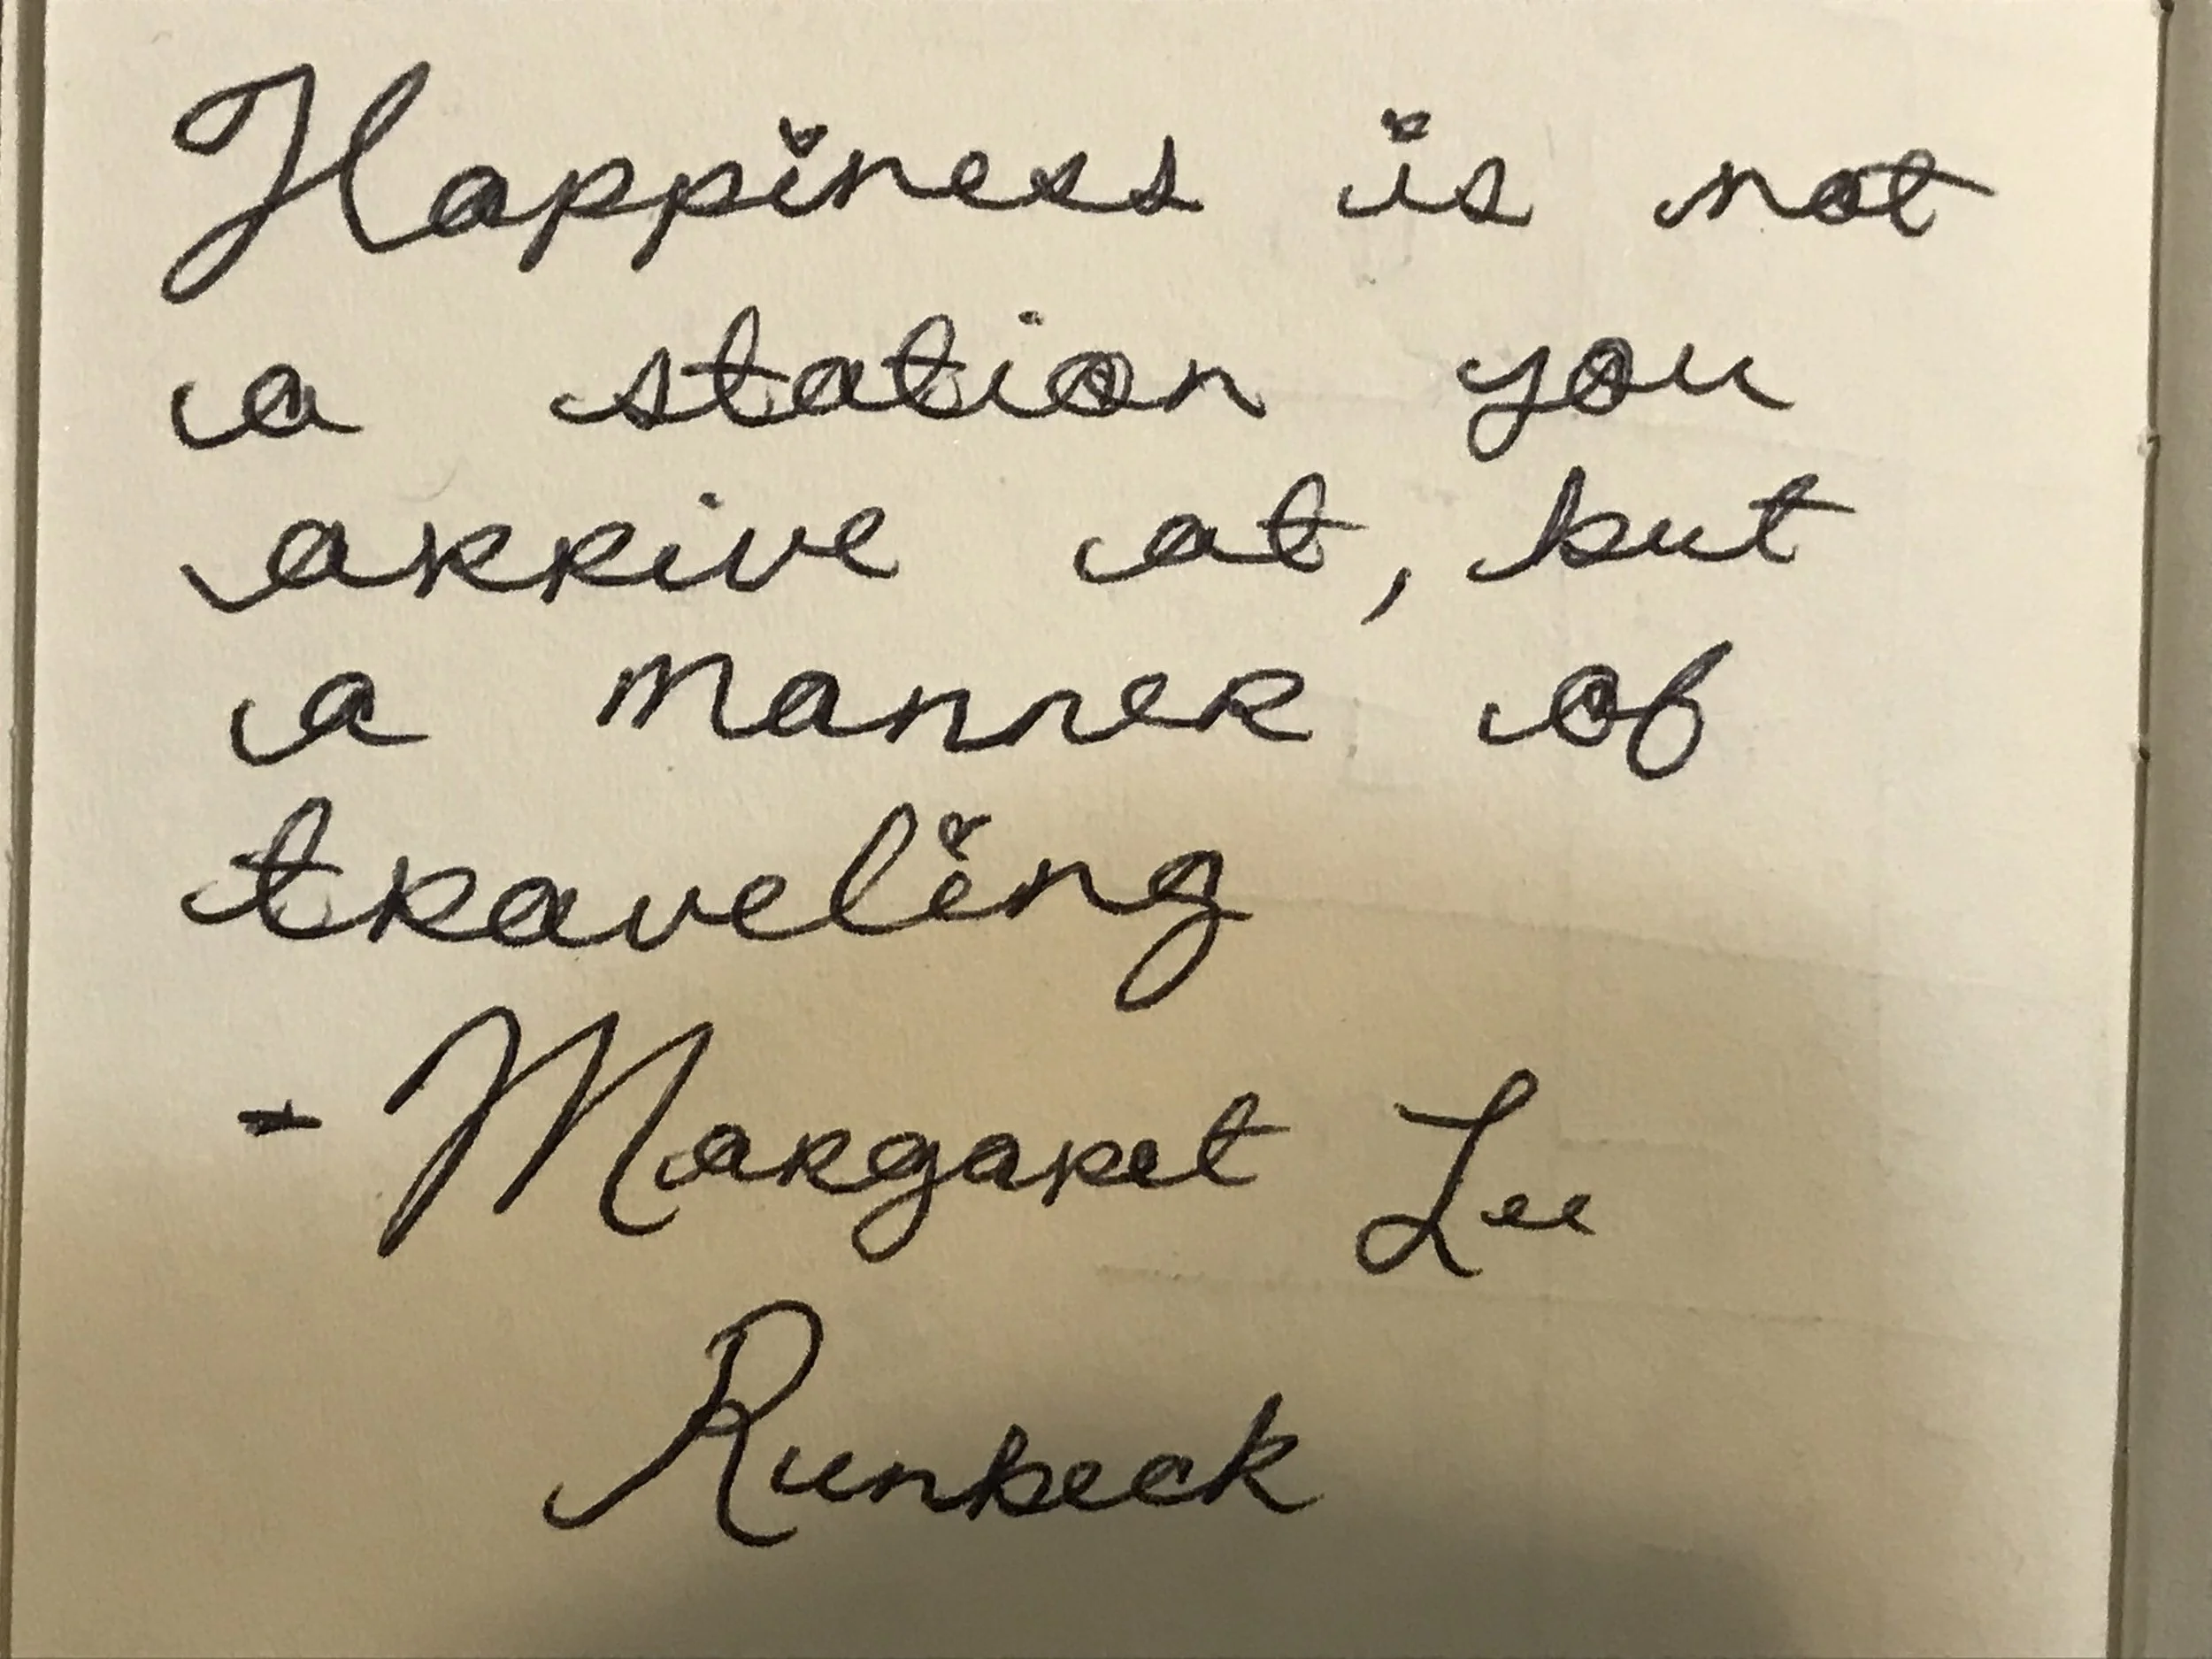 Happiness is not
a station you
arrive at, but
a manner of
traveling
- Margaret Lee
Runbeck